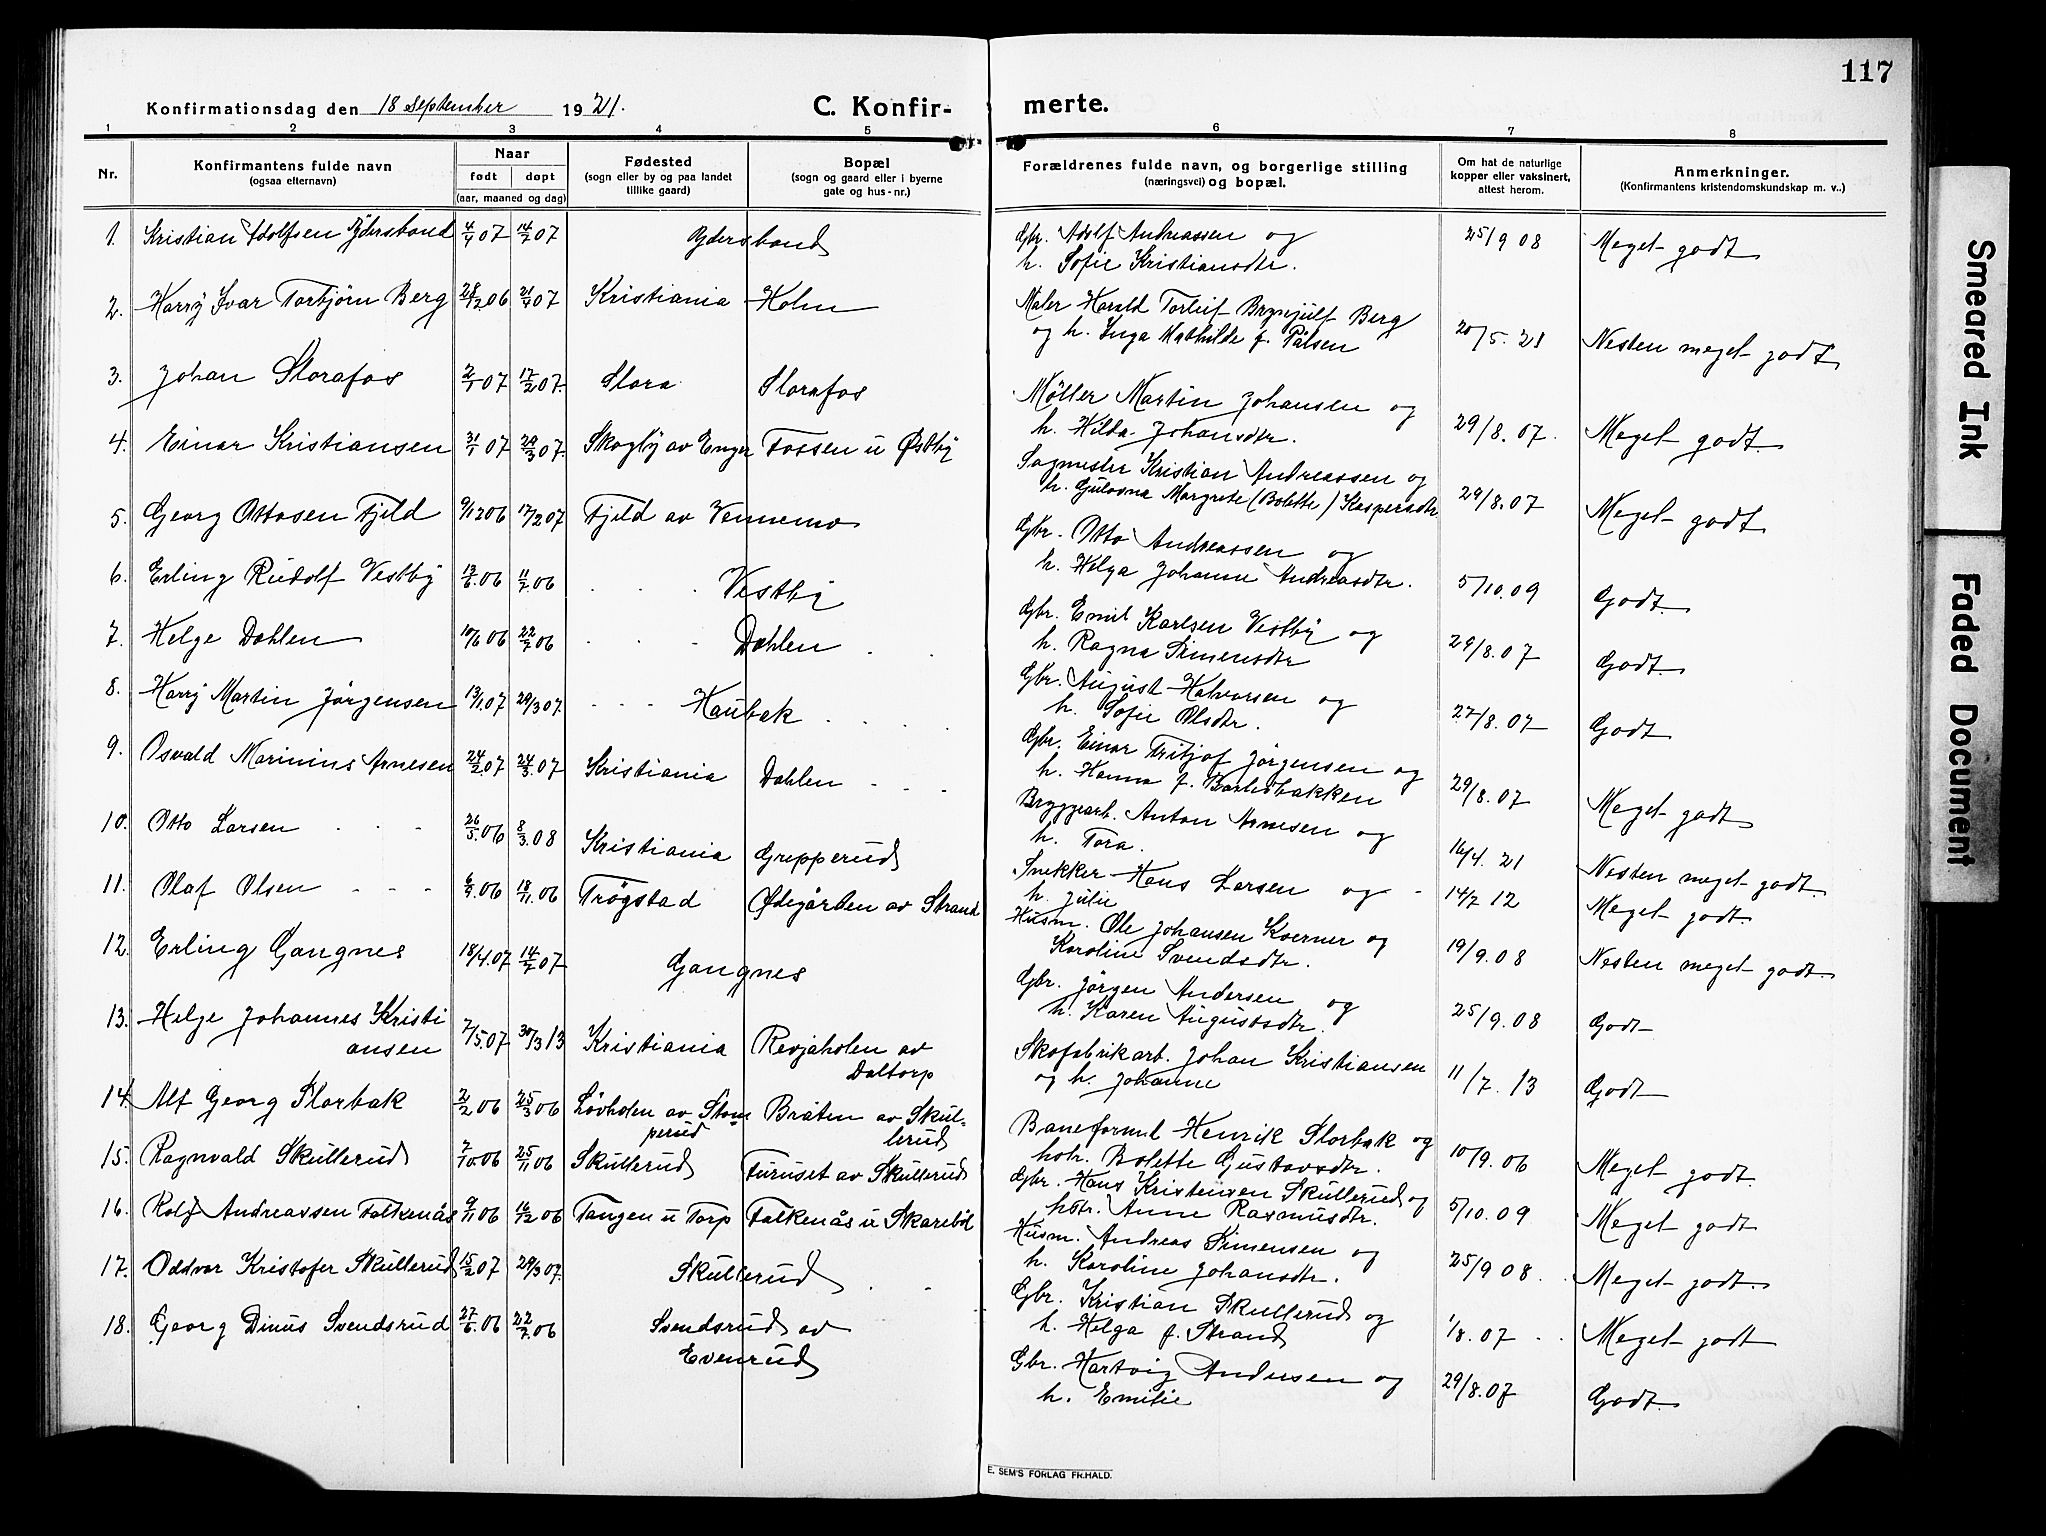 117
Konfirmationsdag den 18 september 1921.
C. Konfirmerte.
1 2 3 4 5 6 7 8
Nr.
Konfirmantens fulde navn
(ogsaa efternavn)
Naar
født døpt
(aar, maaned og dag)
Fødested
(sogn eller by og paa landet
tillike gaard)
Bopæl
(sogn og gaard eller i byerne
gate og hus-nr.)
Forældrenes fulde navn, og borgerlige stilling
(næringsvei) og bopæl.
Om hat de naturlige
kopper eller vaksinert,
attest herom.
Anmerkninger.
(Konfirmantens kristendomskundskap m. v.)
1. Kristian Adolfsen Ydersbond 4/4 07 14/7 07 Ydersbond Gbr. Adolf Andreassen og 25/9 08 Meget godt
h. Sofie Kristiansdtr.
2. Harry Ivar Torbjørn Berg 28/12 06 21/4 07 Kristiania Holm Maler Harald Torleif Brynjulf Berg 20/5. 21 Nesten meget godt
og h. Inga Mathilde f. Pålsen
3. Johan Storafos 2/1 07 17/2 07. Stora Storafos Møller Martin Johansen og 29/8. 07. Meget godt
h. Hilda Johansdtr.
4. Einar Kristiansen 31/1 07 29/3 07. Skogby av Enger Fossen u Østby Sagmester Kristian Andreassen og 29/8. 07 Meget godt
h. Gulovna Margrete (Bolette) Kaspersdtr.
5. Georg Ottosen Fjeld 9/12 06 17/2 07 Fjeld av Vennemo Gbr. Otto Andreassen og 5/10. 09 Godt
h. Helga Johanne Andreasdtr.
6. Erling Rudolf Vestby 13/6. 06 11/7. 06 Vestby Gbr. Emil Karlsen Vestby og 29/8. 07 Godt
h. Ragna Simensdtr
7. Helge Dahlen 10/6 06 22/7 06 Dahlen Gbr. August Halvorsen og 27/8. 07 Godt
h. Sofie Olsdtr.
8. Harry Martin Jørgensen 13/1. 07 29/3 07. Haubak Gbr. Einar Fritjof Jørgensen og 29/8. 07 Meget godt
h. Hanna f. Barlidbakken
9. Osvald Marinius Arnesen 24/2. 07 24/3. 07 Kristiania Dahlen Bryggearb. Anton Arnesen og 16/4. 21 Nesten meget godt
h. Tora.
10. Otto Larsen 26/5. 06 8/3. 08 Kristiania Grepperud Snekker Hans Larsen og 14/7 12 Meget godt.
h. Julie
11. Olaf Olsen 6/9. 06 18/11. 06 Trøgstad Ødegården av Strand Husm. Ole Johansen Kverner og 19/9. 08 Nesten meget godt.
Karoline Svendsdtr.
12. Erling Gangnes 18/4. 07 14/7 07 Gangnes Gbr. Jørgen Andersen og 25/9. 08 Godt
h. Karen Augustsdtr.
13. Helge Johannes Kristi 7/5. 07 30/3 13 Kristiania Revjaholen av Skofabrikarb. Johan Kristiansen 11/7. 13 Godt
ansen Daltorp og h. Johanne
14. Alf Georg Storbak 2/2 06 25/3 06 Løvholen av Stom Bråten av Skul- Baneformd Henrik Storbak og 10/9. 06 Meget godt
perud lerud hstr. Bolette Gustavsdtr.
15. Ragnvald Skullerud 7/10. 06 25/11 06 Skullerud Furuset av Skullerud Gbr. Hans Kristensen Skullerud og 5/10. 09 Meget godt
hstr. Anne Rasmusdtr.
16. Rolf Andreassen Falkenås 9/11 06 16/12 06 Tangen u Torp Falkenås u Skarebøl Husm. Andreas Simensen og 25/9 08. Meget godt.
h. Karoline Johansdtr.
17. Oddvar Kristofer Skullerud 15/2 07 29/3 07. Skullerud Gbr. Kristian Skullerud og 1/8. 07 Meget godt
h. Helga f. Strand
18. Georg Dinus Svendsrud 27/6. 06 22/7. 06 Svendsrud av Gbr. Hartvig Andersen og 29/8. 07 Godt.
Evenrud h. Emilie
E. SEM'S FORLAG FR.HALD.
Smeared Ink
Faded Document